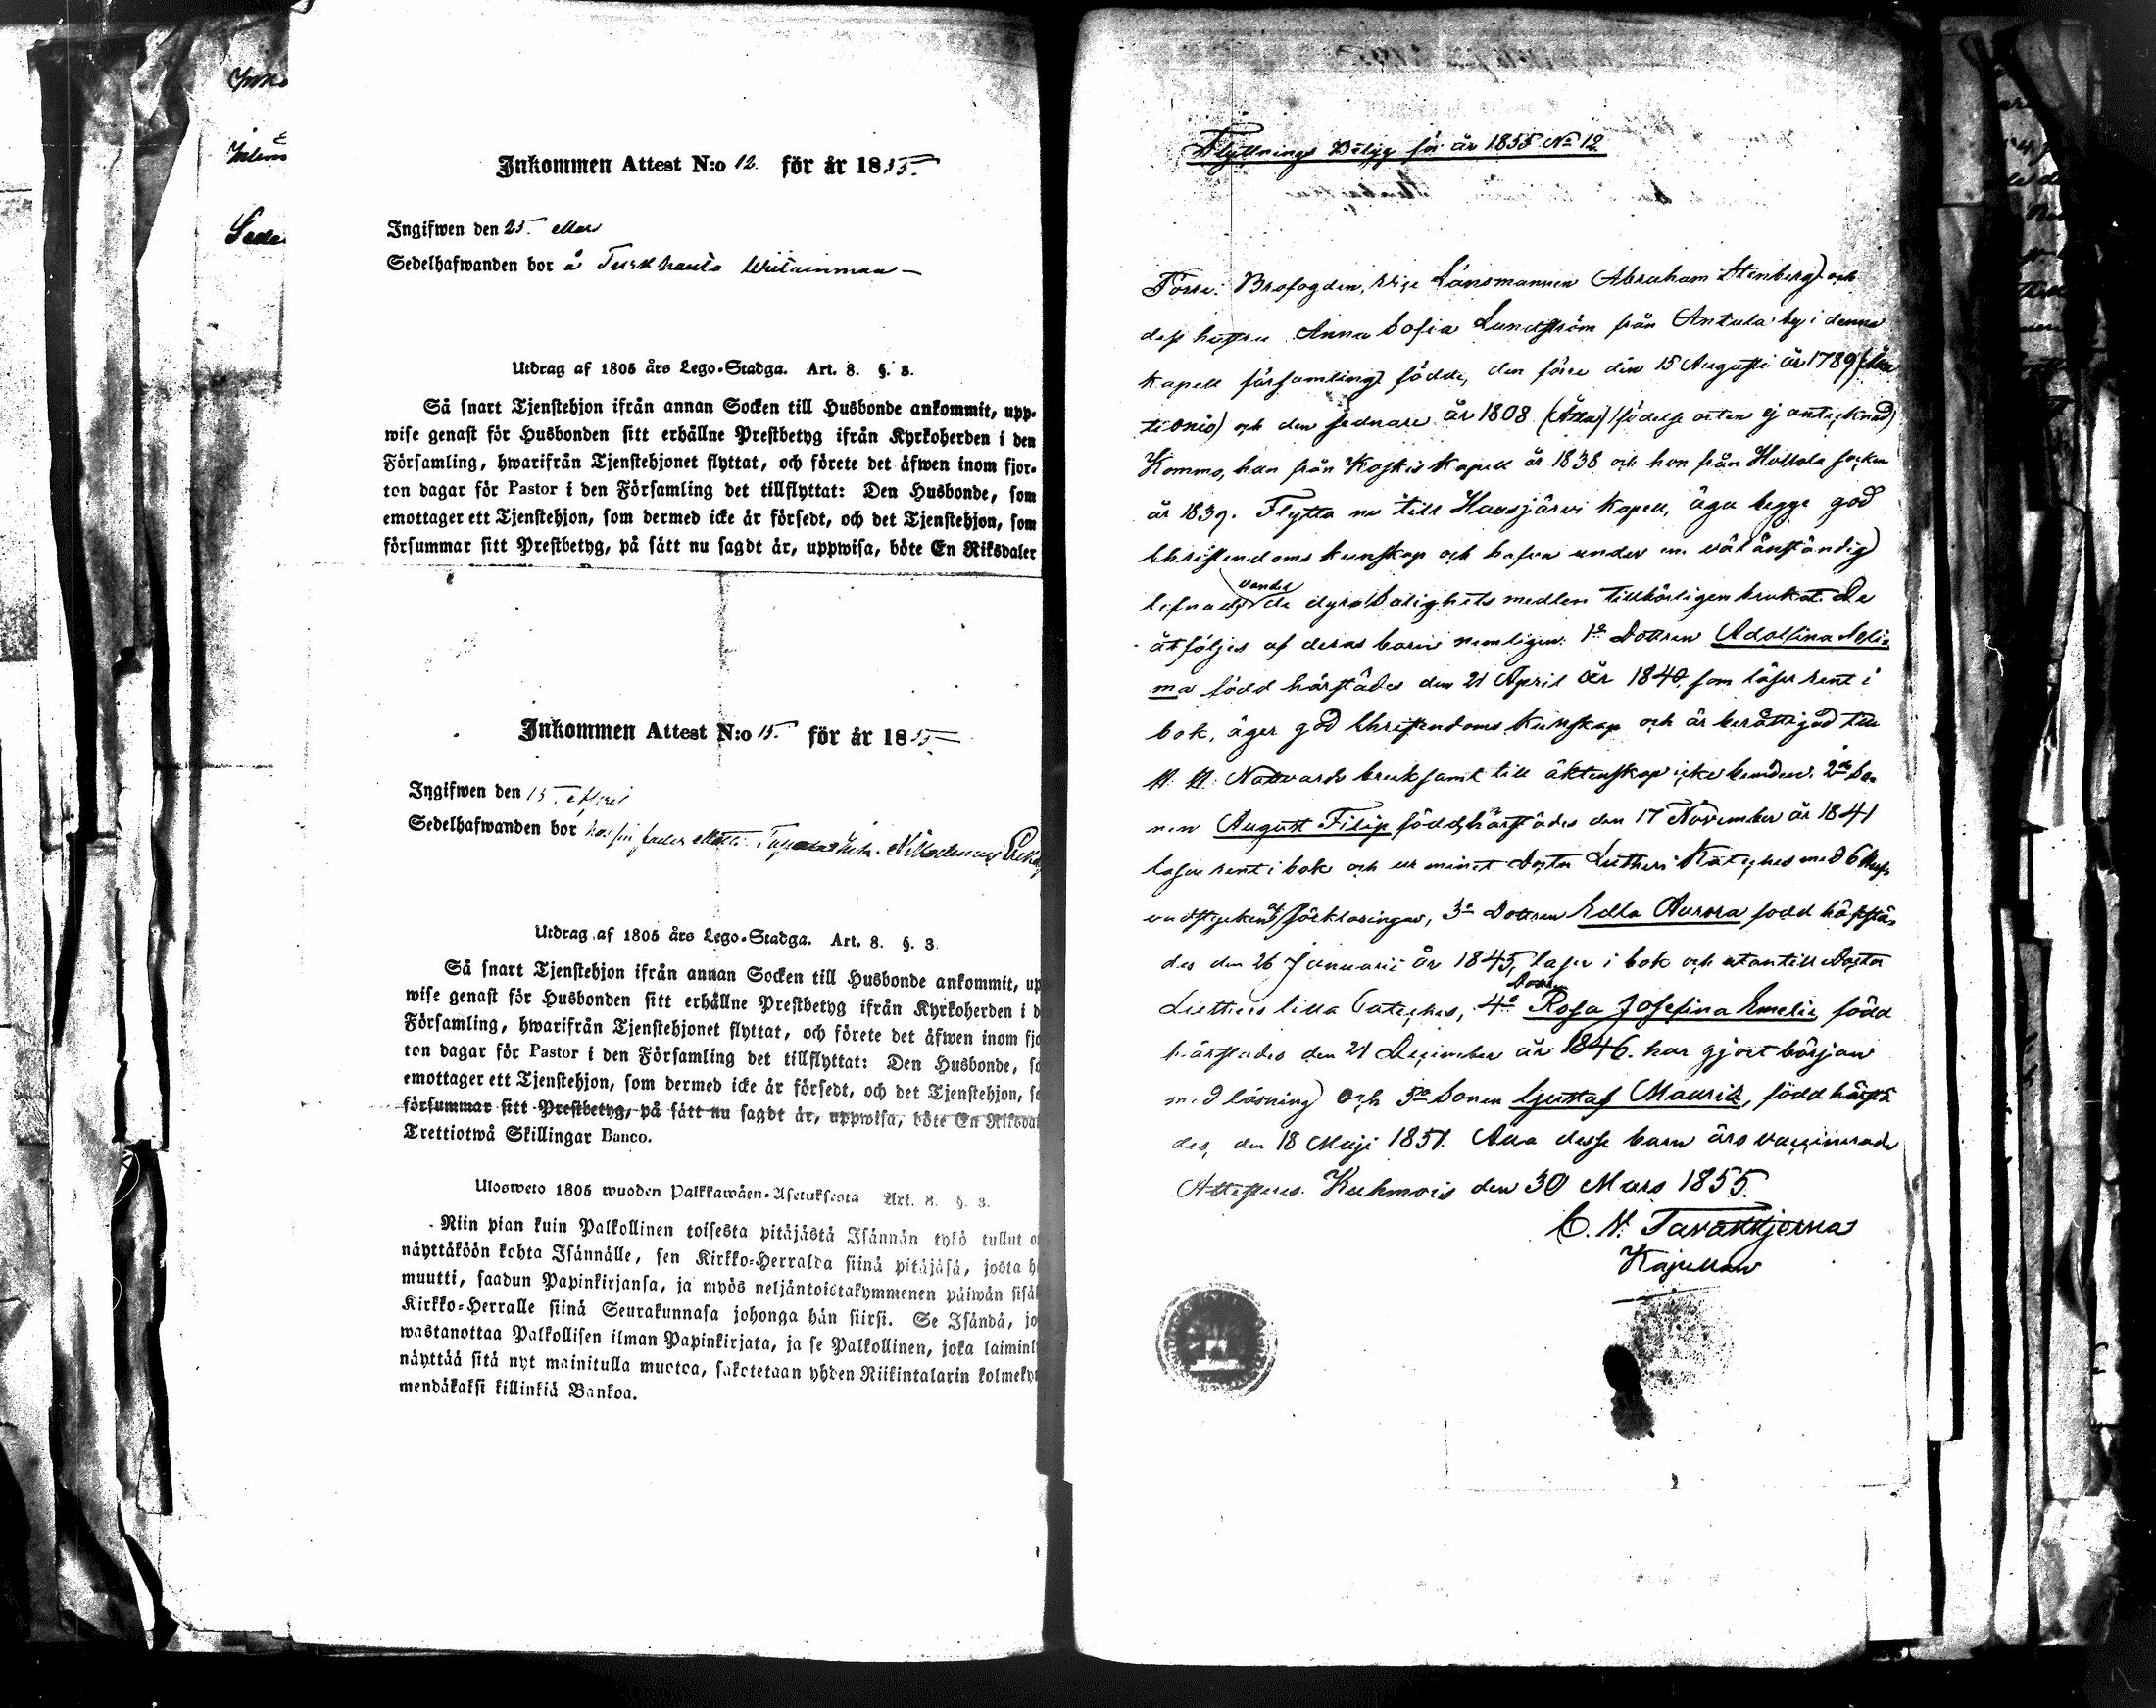 Inkommen Attest N:o 12. för år 1855.
Ingifwen den 25. Mars
Sedelhafwanden bor å Turkhauta
Utdrag af 1805 års Lego-Stadga. Art. 8. §. 3.
Så snart Tjenstehjon ifrån annan Socken till Husbonde ankommit, upp-
wise genast för Husbonden sitt erhållne Prestbetyg ifrån Kyrkoherden i den
Församling, hwarifrån Tjenstehjonet flyttat, och förete det äfwen inom fjor-
ton dagar för Pastor i den Församling det tillflyttat: Den Husbonde, som
emottager ett Tjenstehjon, som dermed icke är försedt, och det Tjenstehjon, som
försummar sitt Prestbetyg, på sätt nu sagdt är, uppwisa, böte En Riksdaler
Inkommen Attest N:o 15. för år 1855
Ingifwen den 15. April
Sedelhafwanden bor hos sin fader Matts
Utdrag af 1805 års Lego-Stadga. Art. 8. §. 3
Så snart Tjenstehjon ifrån annan Socken till Husbonde ankommit, up
wise genast för Husbonden sitt erhållne Prestbetyg ifrån Kyrkoherden i d
Församling, hwarifrån Tjenstehjonet flyttat, och förete det äfwen inom fjo
ton dagar för Pastor i den Församling det tillflyttat: Den Husbonde, so
emottager ett Tjenstehjon, som dermed icke är försedt, och det Tjenstehjon, so
försummar sitt Prestbetyg, på sätt nu sagdt är, uppwisa, böte En Riksdal
Trettiotwå Skillingar Banco.
Ulosweto 1805 wuoden Palkkawäen-Asetuksesta Art. 8. §. 3.
Niin pian kuin Palkollinen toisesta pitäjästä Isännän tykö tullut o
näyttäköön kohta Isännälle, sen Kirkko-Herralda siinä pitäjäsä, josta h
muutti, saadun Papinkirjansa, ja myös neljäntoistakymmenen päiwän sisä
Kirkko-Herralle siinä Seurakunnasa johonga hän siirsi. Se Isändä, jo
wastanottaa Palkollisen ilman Papinkirjata, ja se Palkollinen, joka laiminl
näyttää sitä nyt mainitulla muotoa, sakotetaan yhden Riikintalarin kolmeky
mendäkaksi killinkiä Bankoa.
Flyttnings Betyg för år 1855 No 12
Förre Brofogden, vice Länsmannen Abraham Stenberg och
dess hustru Anna Sofia Lundström från Antula by i denna
Kapell församling födde, den förre den 15 Augusti år 1789
och den sednare år 1808 födelse orten ej antecknad
Komma, han från Koskis Kapell år 1838 och hon från Hollola socken
år 1839. Flytta nu till Hausjärvi Kapell, äga begge god
Christendoms kunskap och hafva under en välanständig
lefnads vandel de dyra Salighets medlen tillbörligen brukat. De
åtföljes af deras barn nemligen: 1o Dottren Adolfina Seli-
ma född härstädes den 21 April år 1840, som läser rent i
bok, äger god Christendoms Kunskap och är berättigad till
H. H. Nattvards bruk samt till äktenskap icke bunden. 2o So-
nen August Filip född härstädes den 17 November år 1841
läser rent i bok och ur minnet Doctor Lutheri Kateches med
förklaringar, 3o Dottren Edla Aurora född härstä-
des den 26 Januarii år 1845, läser i bok och utantill Doctor
Lutheri lilla Cateches, 4o Dottren Rosa Josefina Emelie född
härstädes den 21 December år 1846. har gjort början
med läsning och 5o Sonen Gustaf Maurits, född härstä
des, den 18 Maji 1851. Alla desse barn äro vaccinerade
Attesteras. Kuhmois den 30 Mars 1855.
Kapellan